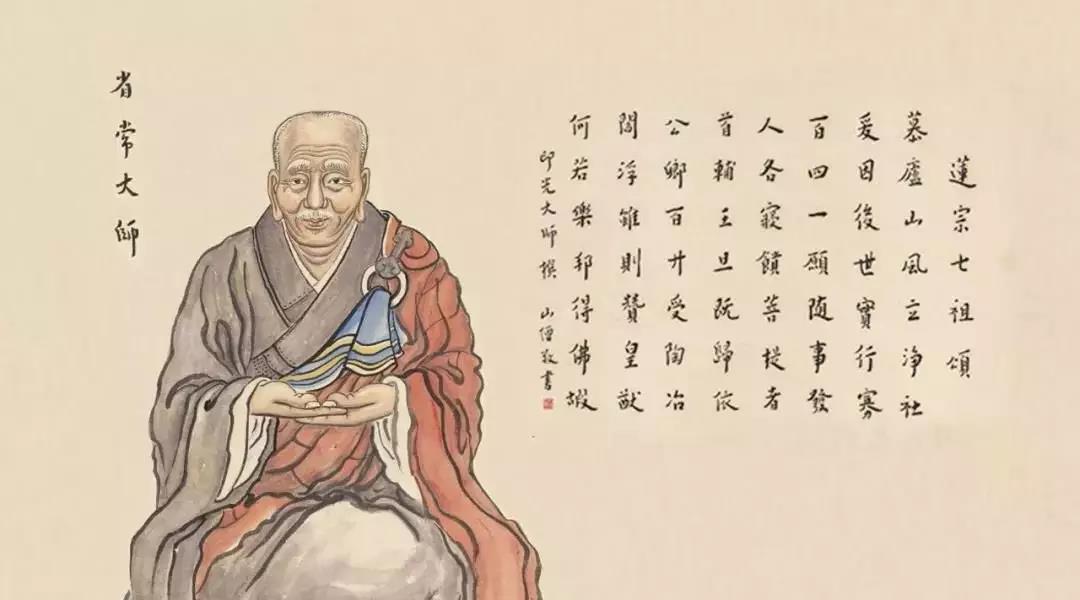 蓮宗七祖頌
慕廬山風立淨社
爰因後世實行寡
百四一願随事發
人各饋菩提者
首輔王旦既歸依
公卿百廿受陶冶
閻浮雖則贊皇猷
何若樂邦得佛嘏
印光大師撰 山僧敬書
省常大師